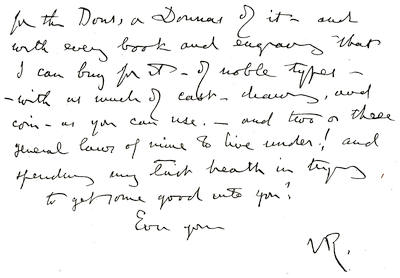 for the Dons, or Donnas of it - and
with every book and engraving that
I can buy for it - of noble types -
- with as much of cast - drawing, and
coin - as you can use. - and two or three
general laws of mine to live under! and
spending my last breath in trying,
to get some good into you!
Ever your
JR.